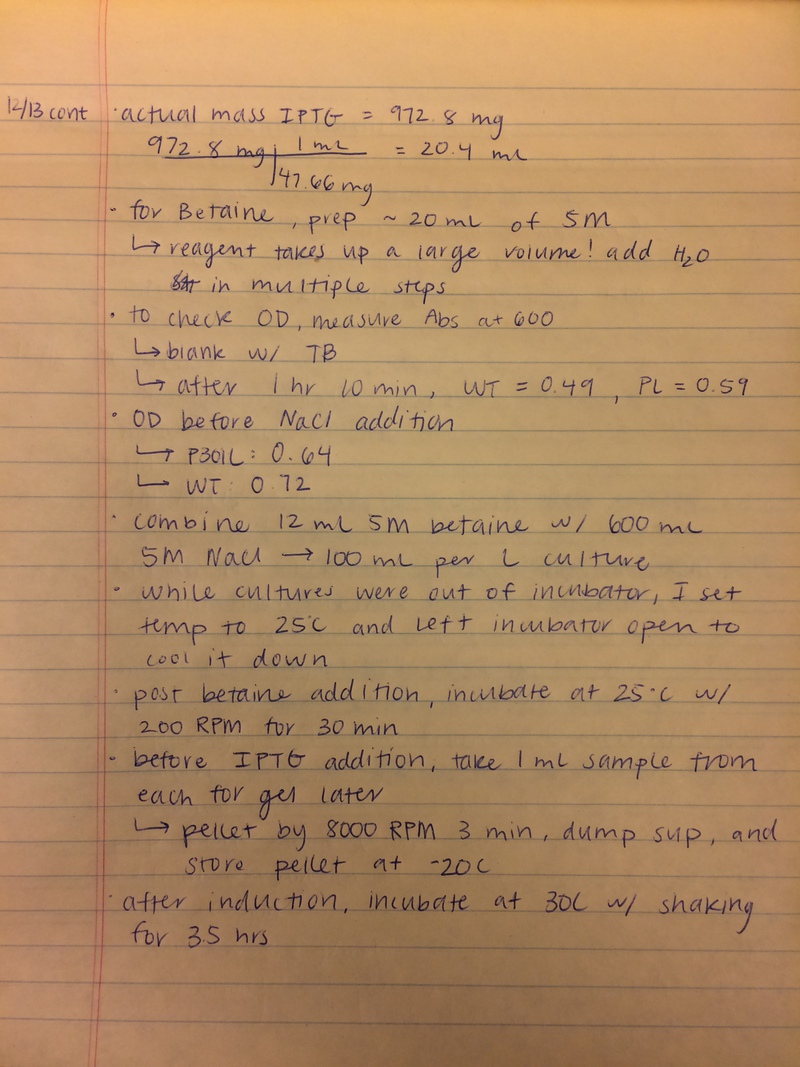 12/13 cont · actual mass IPTG = 972.8 mg
972.8 mg | 1 mL = 20.4 mL
47.66 mg
- for Betaine, prep ~ 20 mL of 5M
↳ reagent takes up a large volume! add H₂O
in multiple steps
· to check OD, measure Abs at 600
↳ blank w/ TB
↳ after 1 hr 10 min, WT = 0.49, PL = 0.59
· OD before NaCl addition
↳ P301L: 0.64
↳ WT: 0.72
· combine 12 mL 5M betaine w/ 600 mL
5M NaCl → 100 mL per L culture
· while cultures were out of incubator, I set
temp to 25°C and left incubator open to
cool it down
· post betaine addition, incubate at 25°C w/
200 RPM for 30 min
- before IPTG addition, take 1 mL sample from
each for gel later
↳ pellet by 8000 RPM 3 min, dump sup, and
store pellet at -20C
· after induction, incubate at 30C w/ shaking
for 3.5 hrs